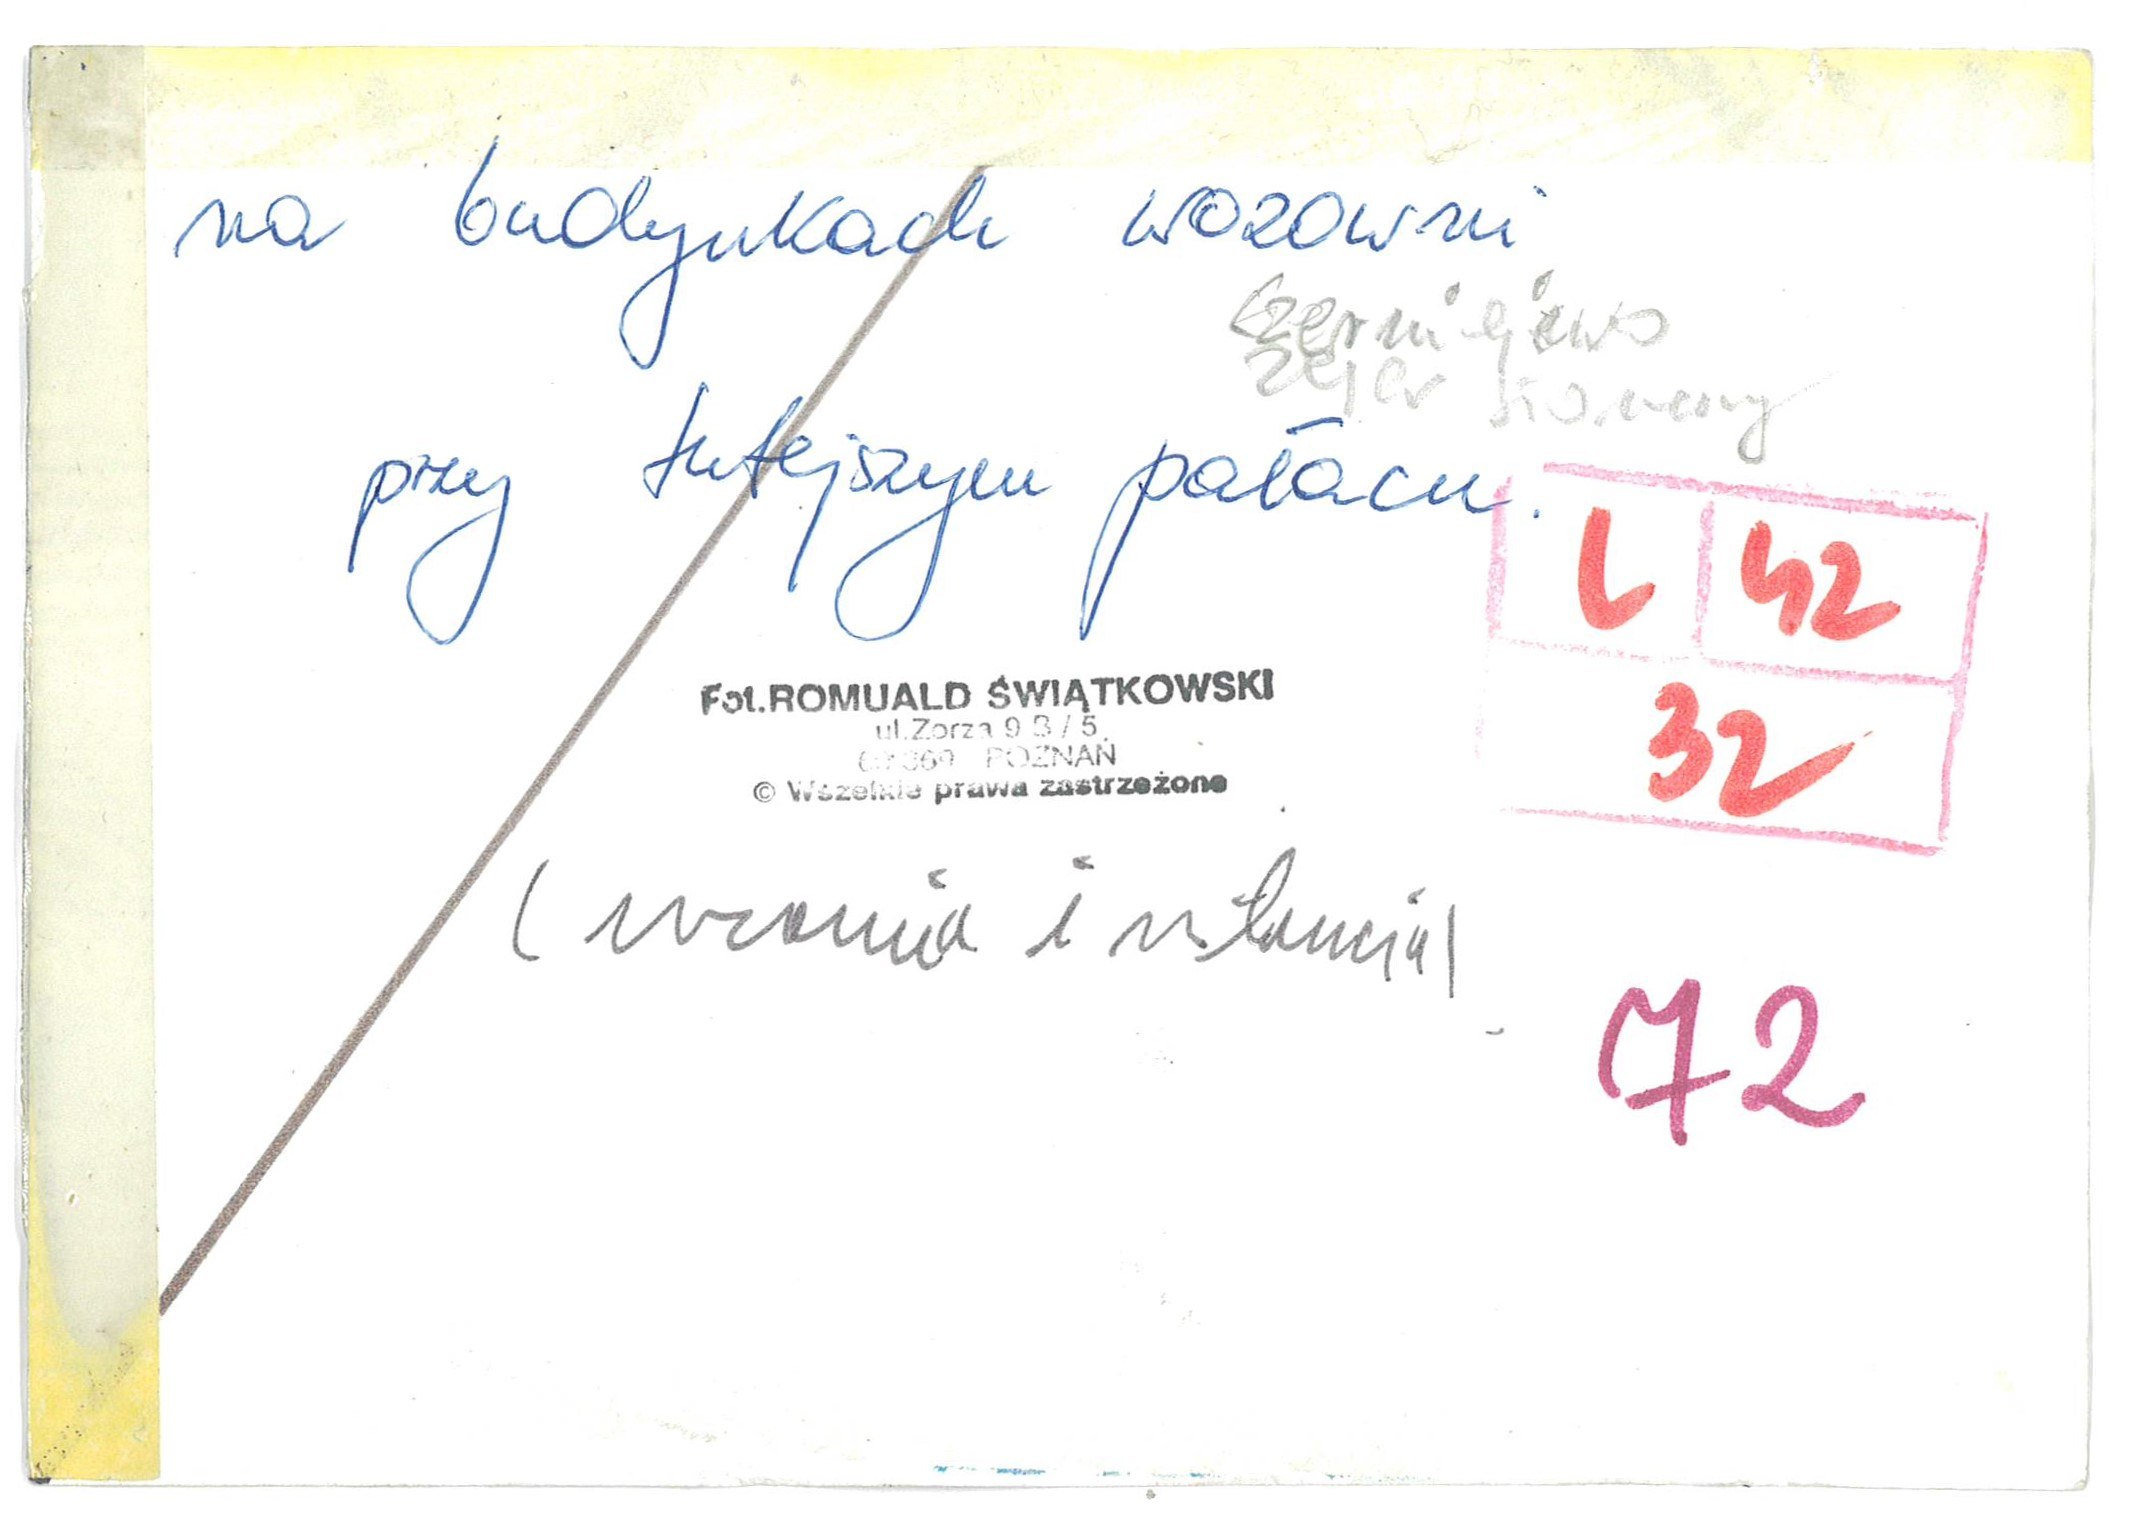 na budynkach wozowni
Czerniejewo
zegar słoneczny
przy tutejszym pałacu.
L 42
32
Fot.ROMUALD ŚWIĄTKOWSKI
ul.Zorza 93/5
POZNAŃ
© Wszelkie prawa zastrzeżone
72